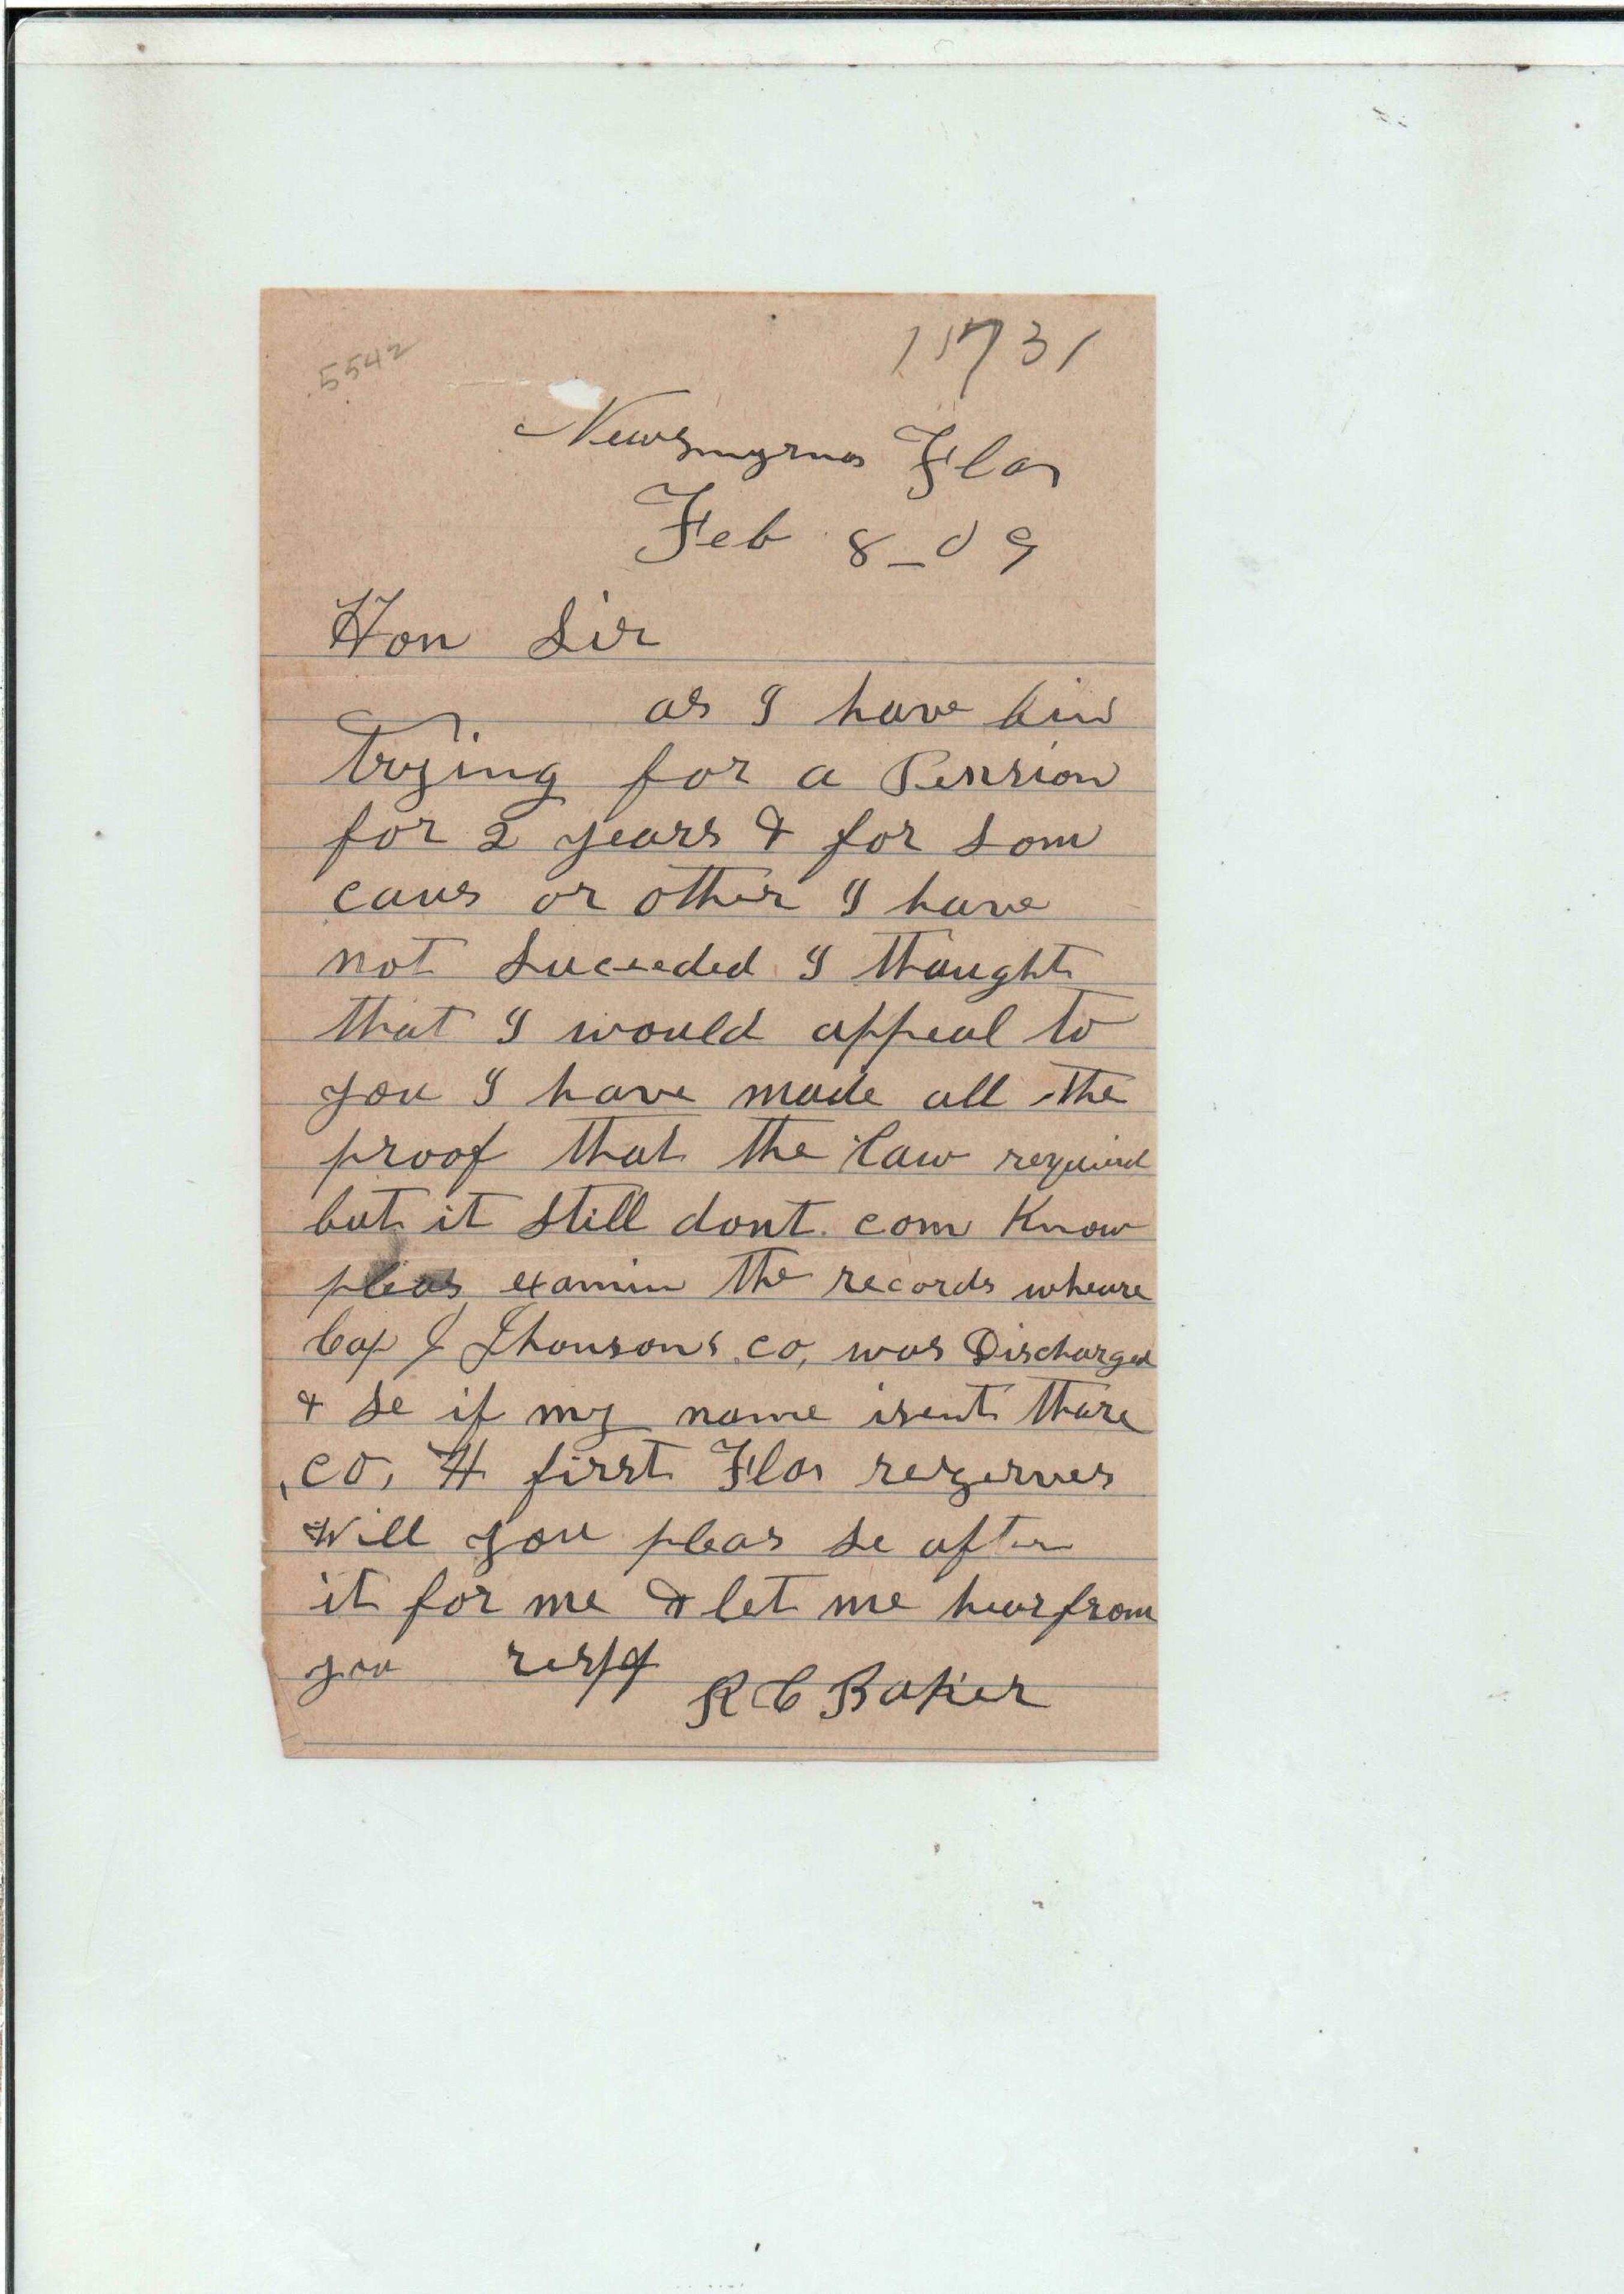 5542
15731
Newsmyrna Fla
Feb 8-09
Hon Sir
as I have bin
trying for a Pension
for 2 years & for som
caus or other I have
not Suceeded I thought
that I would appeal to
you I have made all the
proof that the law required
but it still dont com Know
pleas examin the records wheare
Cap J Jhonsons co, was Discharged
& se if my name isent thare
co, H first Fla rezerves
Will you pleas se after
it for me & let me hear from
you respf
R C Baker